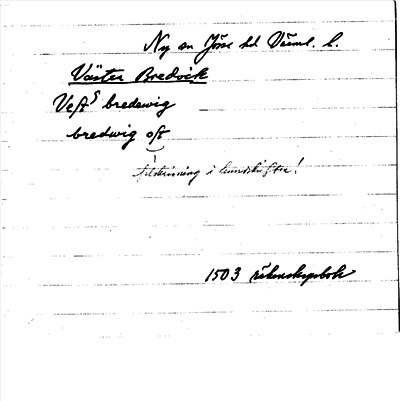 Ny sn Jösse hd Värml. l.
Väster Bredvik
Vest bredewig
bredwig oft
i handskriften!
1503 räkenskapsbok